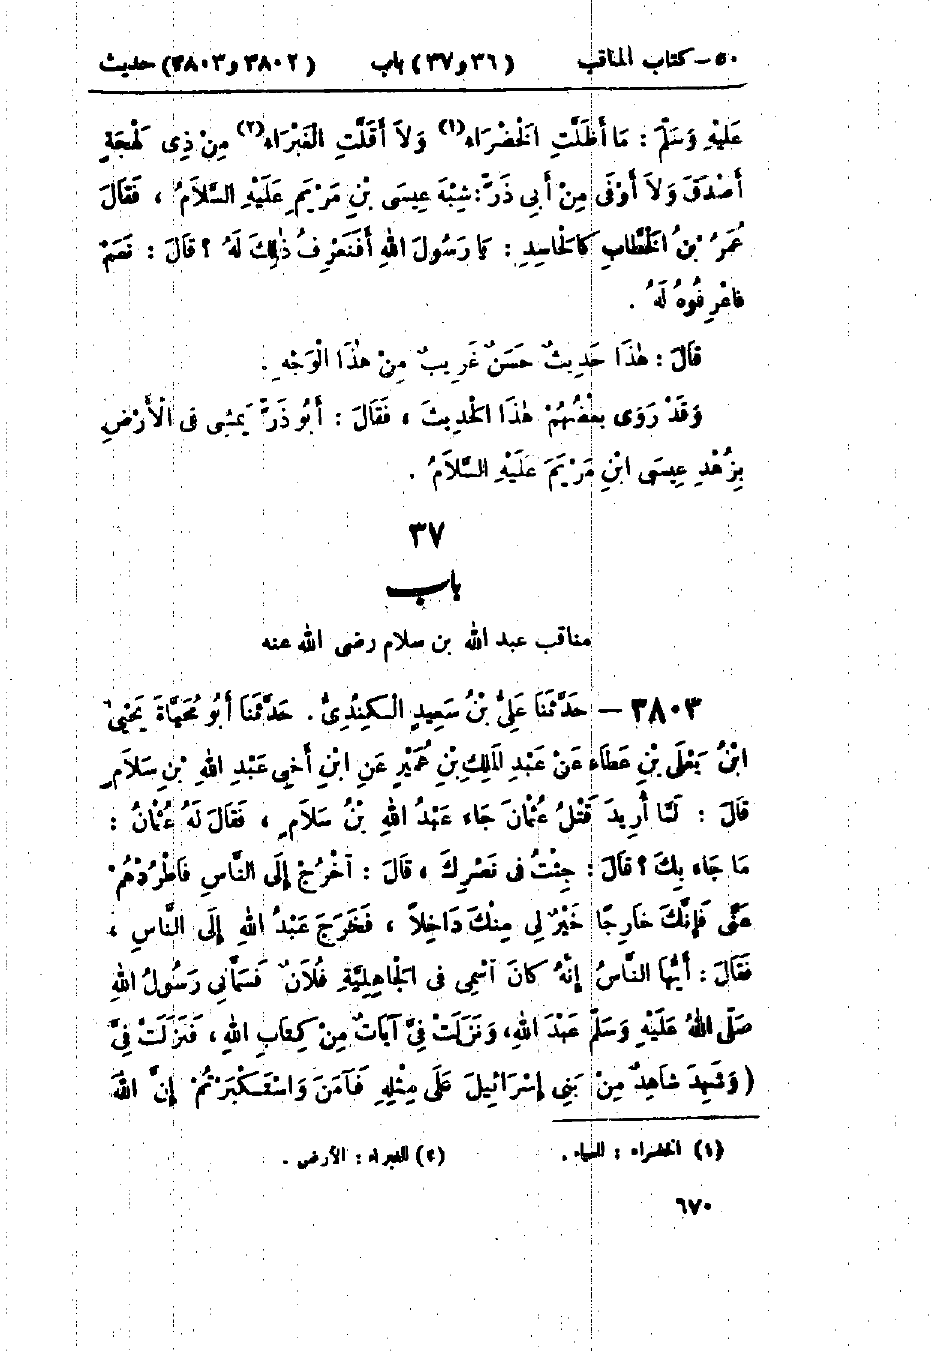 ٥٠ – كتاب المناقب (٣٦ و ٣٧) باب (٣٨٠٢ و ٣٨٠٣) حديث
عَلَيْهِ وَسَلَّمَ : مَا أَظَلَّتِ الْخَضْرَاءُ(١) وَلاَ أَقَلَّتِ الْغَبْرَاءُ(٢) مِنْ ذِى لَهْجَةٍ
أَصْدَقَ وَلاَ أَوْفَى مِنْ أَبِي ذَرٍّ : شِبْهَ عِيسَى بْنِ مَرْيَمَ عَلَيْهِ السَّلاَمُ ، فَقَالَ
عُمَرُ بْنُ الْخَطَّابِ كَالْحَاسِدِ : يَا رَسُولَ اللهِ أَفَنَعْرِفُ ذٰلِكَ لَهُ ؟ قَالَ : نَعَمْ
فَاعْرِفُوهُ لَهُ .
قَالَ : هٰذَا حَدِيثٌ حَسَنٌ غَرِيبٌ مِنْ هٰذَا الْوَجْهِ .
وَقَدْ رَوَى بَعْضُهُمْ هٰذَا الْحَدِيثَ ، فَقَالَ : أَبُو ذَرٍّ يَمْشِى فِى الْأَرْضِ
بِزُهْدِ عِيسَى ابْنِ مَرْيَمَ عَلَيْهِ السَّلاَمُ .
٣٧
باب
مناقب عبد الله بن سلام رضى الله عنه
٣٨٠٣ – حَدَّثَنَا عَلِيُّ بْنُ سَعِيدٍ الْكِنْدِيُّ . حَدَّثَنَا أَبُو مُحَيَّاةَ يَحْيَىٰ
ابْنُ يَعْلَى بْنِ عَطَاءٍ عَنْ عَبْدِ الْمَلِكِ بْنِ عُمَيْرٍ عَنِ ابْنِ أَخِي عَبْدِ اللهِ بْنِ سَلاَمٍ
قَالَ : لَمَّا أُرِيدَ قَتْلُ عُثْمَانَ جَاءَ عَبْدُ اللهِ بْنُ سَلاَمٍ ، فَقَالَ لَهُ عُثْمَانُ :
مَا جَاءَ بِكَ ؟ قَالَ : جِئْتُ فِى نَصْرِكَ ، قَالَ : آخْرُجْ إِلَى النَّاسِ فَاطْرُدْهُمْ
عَنِّى فَإِنَّكَ خَارِجًا خَيْرٌ لِى مِنْكَ دَاخِلاً ، فَخَرَجَ عَبْدُ اللهِ إِلَى النَّاسِ ،
فَقَالَ : أَيُّهَا النَّاسُ إِنَّهُ كَانَ آسْمِى فِى الْجَاهِلِيَّةِ فُلاَنٌ فَسَمَّانِى رَسُولُ اللهِ
صَلَّى اللهُ عَلَيْهِ وَسَلَّمَ عَبْدَ اللهِ، وَنَزَلَتْ فِىَّ آيَاتٌ مِنْ كِتَابِ اللهِ ، فَنَزَلَتْ فِىَّ
( وَشَهِدَ شَاهِدٌ مِنْ بَنِى إِسْرَائِيلَ عَلَى مِثْلِهِ فَآمَنَ وَاسْتَكْبَرْتُمْ إِنَّ اللهَ
(١) الخضراء : السماء . (٢) الغبراء : الأرض .
٦٧٠